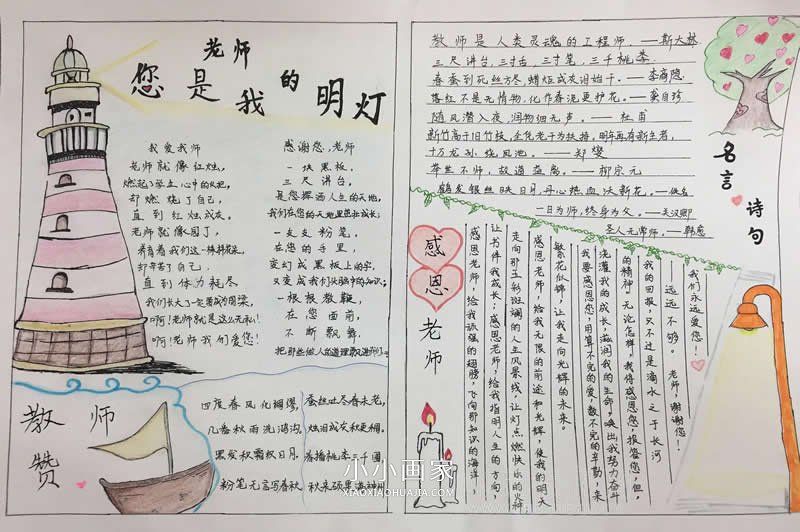 老师
您是我的明灯
我爱我师
老师就像红烛,
燃起了学生心中的火把,
却燃烧了自己,
直到红烛成灰。
老师就像园丁,
养育着我们这一棵棵花朵,
却辛苦了自己.
直到体力耗尽
我们长大了一定要成为国梁,
啊!老师就是这么无私!
啊!老师我们爱您!
感谢您,老师
一块黑板,
三尺讲台,
是您挥洒人生的天地,
我们在您的天地里茁壮成长;
一支支粉笔,
在您的手里,
变幻成黑板上的字,
又变成我们头脑中的知识;
一根根教鞭,
在您面前,
不断飘舞,
把那些做人的道理飘进我们心
教师赞
四度春风化绸缪,
几番秋雨洗鸿沟。
黑发积霜织日月,
粉笔无言写春秋
蚕丝吐尽春未老,
烛泪成灰秋更稠。
春播桃李三千圃,
秋来硕果满神州
教师是人类灵魂的工程师。——斯大林
三尺讲台,三寸舌,三寸笔,三千桃李.
春蚕到死丝方尽,蜡炬成灰泪始干。——李商隐
落红不是无情物,化作春泥更护花。——龚自珍
随风潜入夜,润物细无声。——杜甫
新竹高于旧竹枝,全凭老干为扶持,明年再有新生者,
十万龙孙绕凤池。——郑燮
举世不师,故道益离。——柳宗元
鹤发银丝映日月,丹心热血沃新花。——佚名
一日为师,终身为父。——关汉卿
圣人无常师。——韩愈
名言诗句
感恩老师
感恩老师,给我顽强的翅膀,飞向那知识的海洋,
让书伴我成长;感恩老师,给我指明人生的方向,
走向那五彩斑斓的人生风景线,让灯点燃快乐的火种
感恩老师,给我无限的前途和光辉,使我的明天
繁花似锦,让我走向光辉的未来。
我要感恩您,用算不完的爱,数不完的辛勤,来
浇灌我的成长,滋润我的生命,唤出我努力奋斗
的精神,无论怎样,我得感恩您,报答您,但,
我的回报,只不过是滴水之于长河
——远远不够。老师,谢谢您!
我们永远爱您!
小小画家
XIAOXIAOHUAJIA.COM